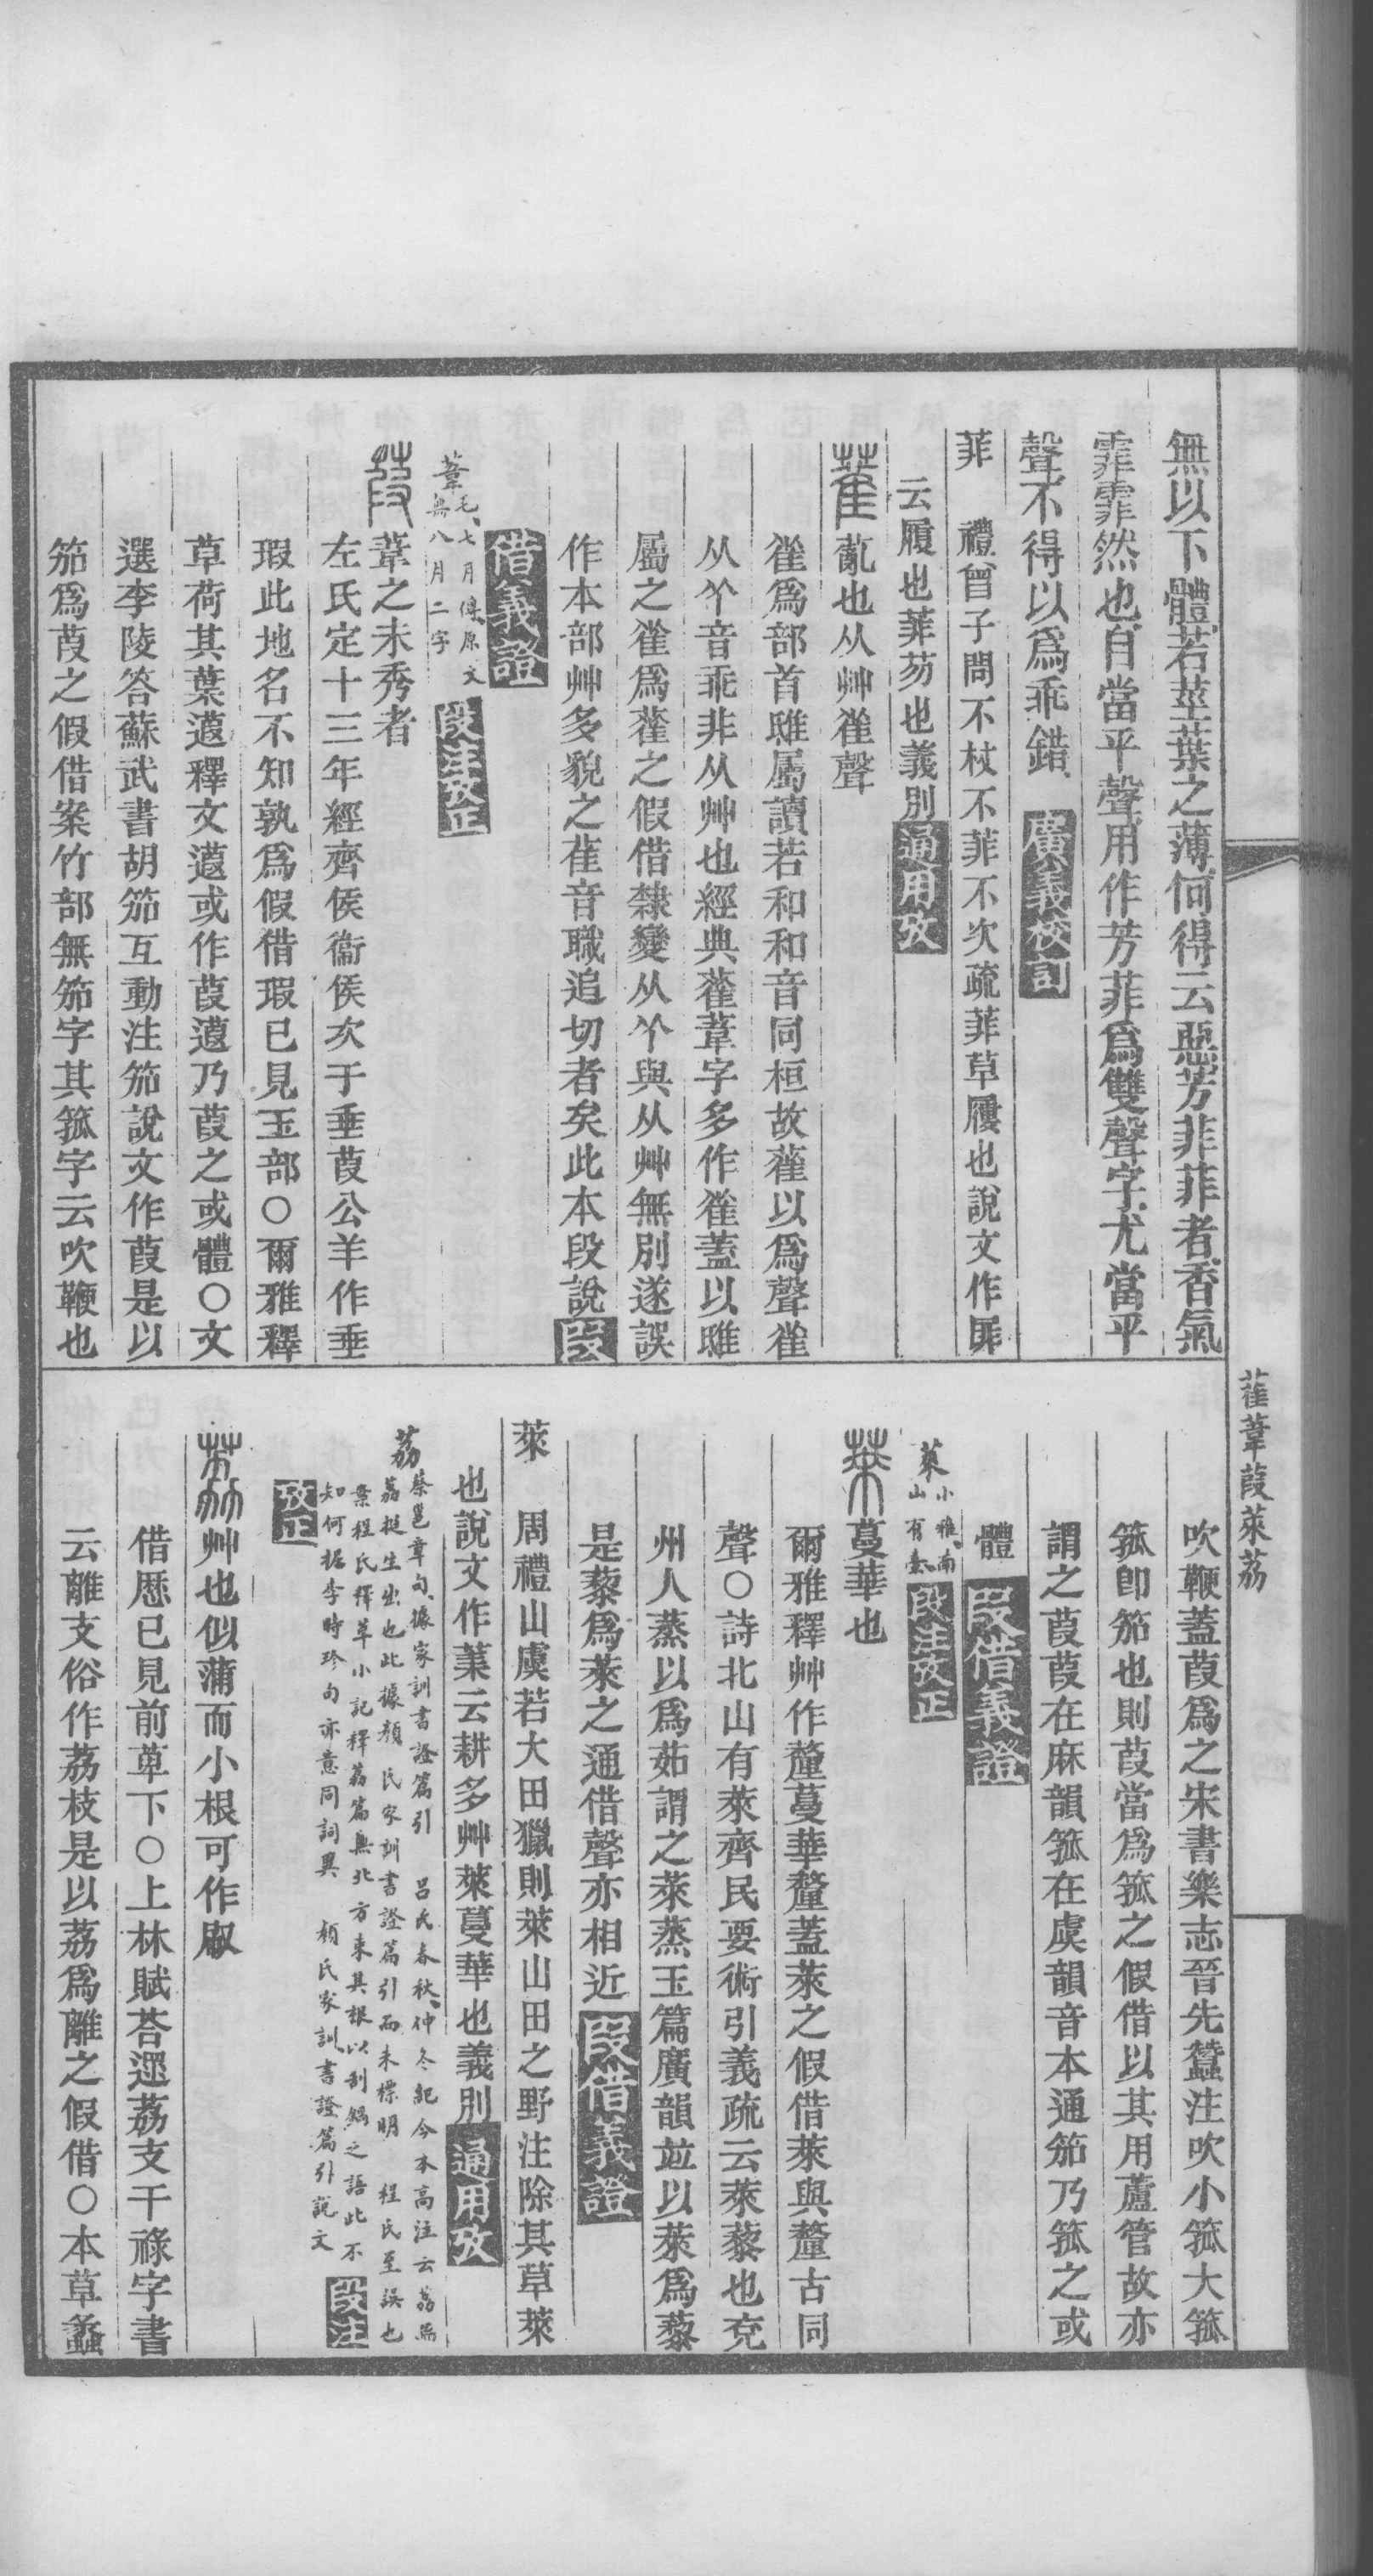 無以下體若莖葉之薄何得云惡芳菲菲者香氣
霏霏然也自當平聲用作芳菲爲雙聲字尤當平
聲不得以爲乖錯 廣義校訂
菲 禮曾子問不杖不菲不次疏菲草屨也說文作屝
云履也菲芴也義別 通用攷
萑 薍也从艸雈聲
雈爲部首鴟屬讀若和和音同桓故雚以爲聲雈
从𠁥音乖非从艸也經典雚葦字多作雈蓋以鴟
屬之雈爲雚之假借隸變从𠁥與从艸無別遂誤
作本部艸多貌之萑音職追切者矣此本段說 段
借義證
葦 毛七月傳原文
無八月二字 段注攷正
葭 葦之未秀者
左氏定十三年經齊侯衞侯次于垂葭公羊作垂
瑕此地名不知孰爲假借瑕已見玉部〇爾雅釋
草荷其葉蕸釋文蕸或作葭蕸乃葭之或體〇文
選李陵答蘇武書胡笳互動注笳說文作葭是以
笳爲葭之假借案竹部無笳字其箛字云吹鞭也
萑葦葭萊荔
吹鞭蓋葭爲之宋書樂志晉先蠶注吹小箛大箛
箛卽笳也則葭當爲箛之假借以其用蘆管故亦
謂之葭葭在麻韻箛在虞韻音本通笳乃箛之或
體 叚借義證
萊 小雅南
山有臺 段注攷正
萊 蔓華也
爾雅釋艸作釐蔓華釐蓋萊之假借萊與釐古同
聲〇詩北山有萊齊民要術引義疏云萊藜也兗
州人蒸以爲茹謂之萊蒸玉篇廣韻竝以萊爲藜
是藜爲萊之通借聲亦相近 叚借義證
萊 周禮山虞若大田獵則萊山田之野注除其草萊
也說文作茉云耕多艸萊蔓華也義別 通用攷
荔 蔡邕章句據家訓書證篇引 呂氏春秋仲冬紀今本高注云荔馬
荔挺生出也此據顏氏家訓書證篇引而未標明 程氏至誤也
案程氏釋草小記釋荔篇無北方束其根以刮鍋之語此不
知何據李時珍句亦意同詞異 顏氏家訓書證篇引說文 段注
攷正
荔 艸也似蒲而小根可作㕞
借凥已見前萆下〇上林賦荅遝荔支干祿字書
云離支俗作荔枝是以荔爲離之假借〇本草蠡